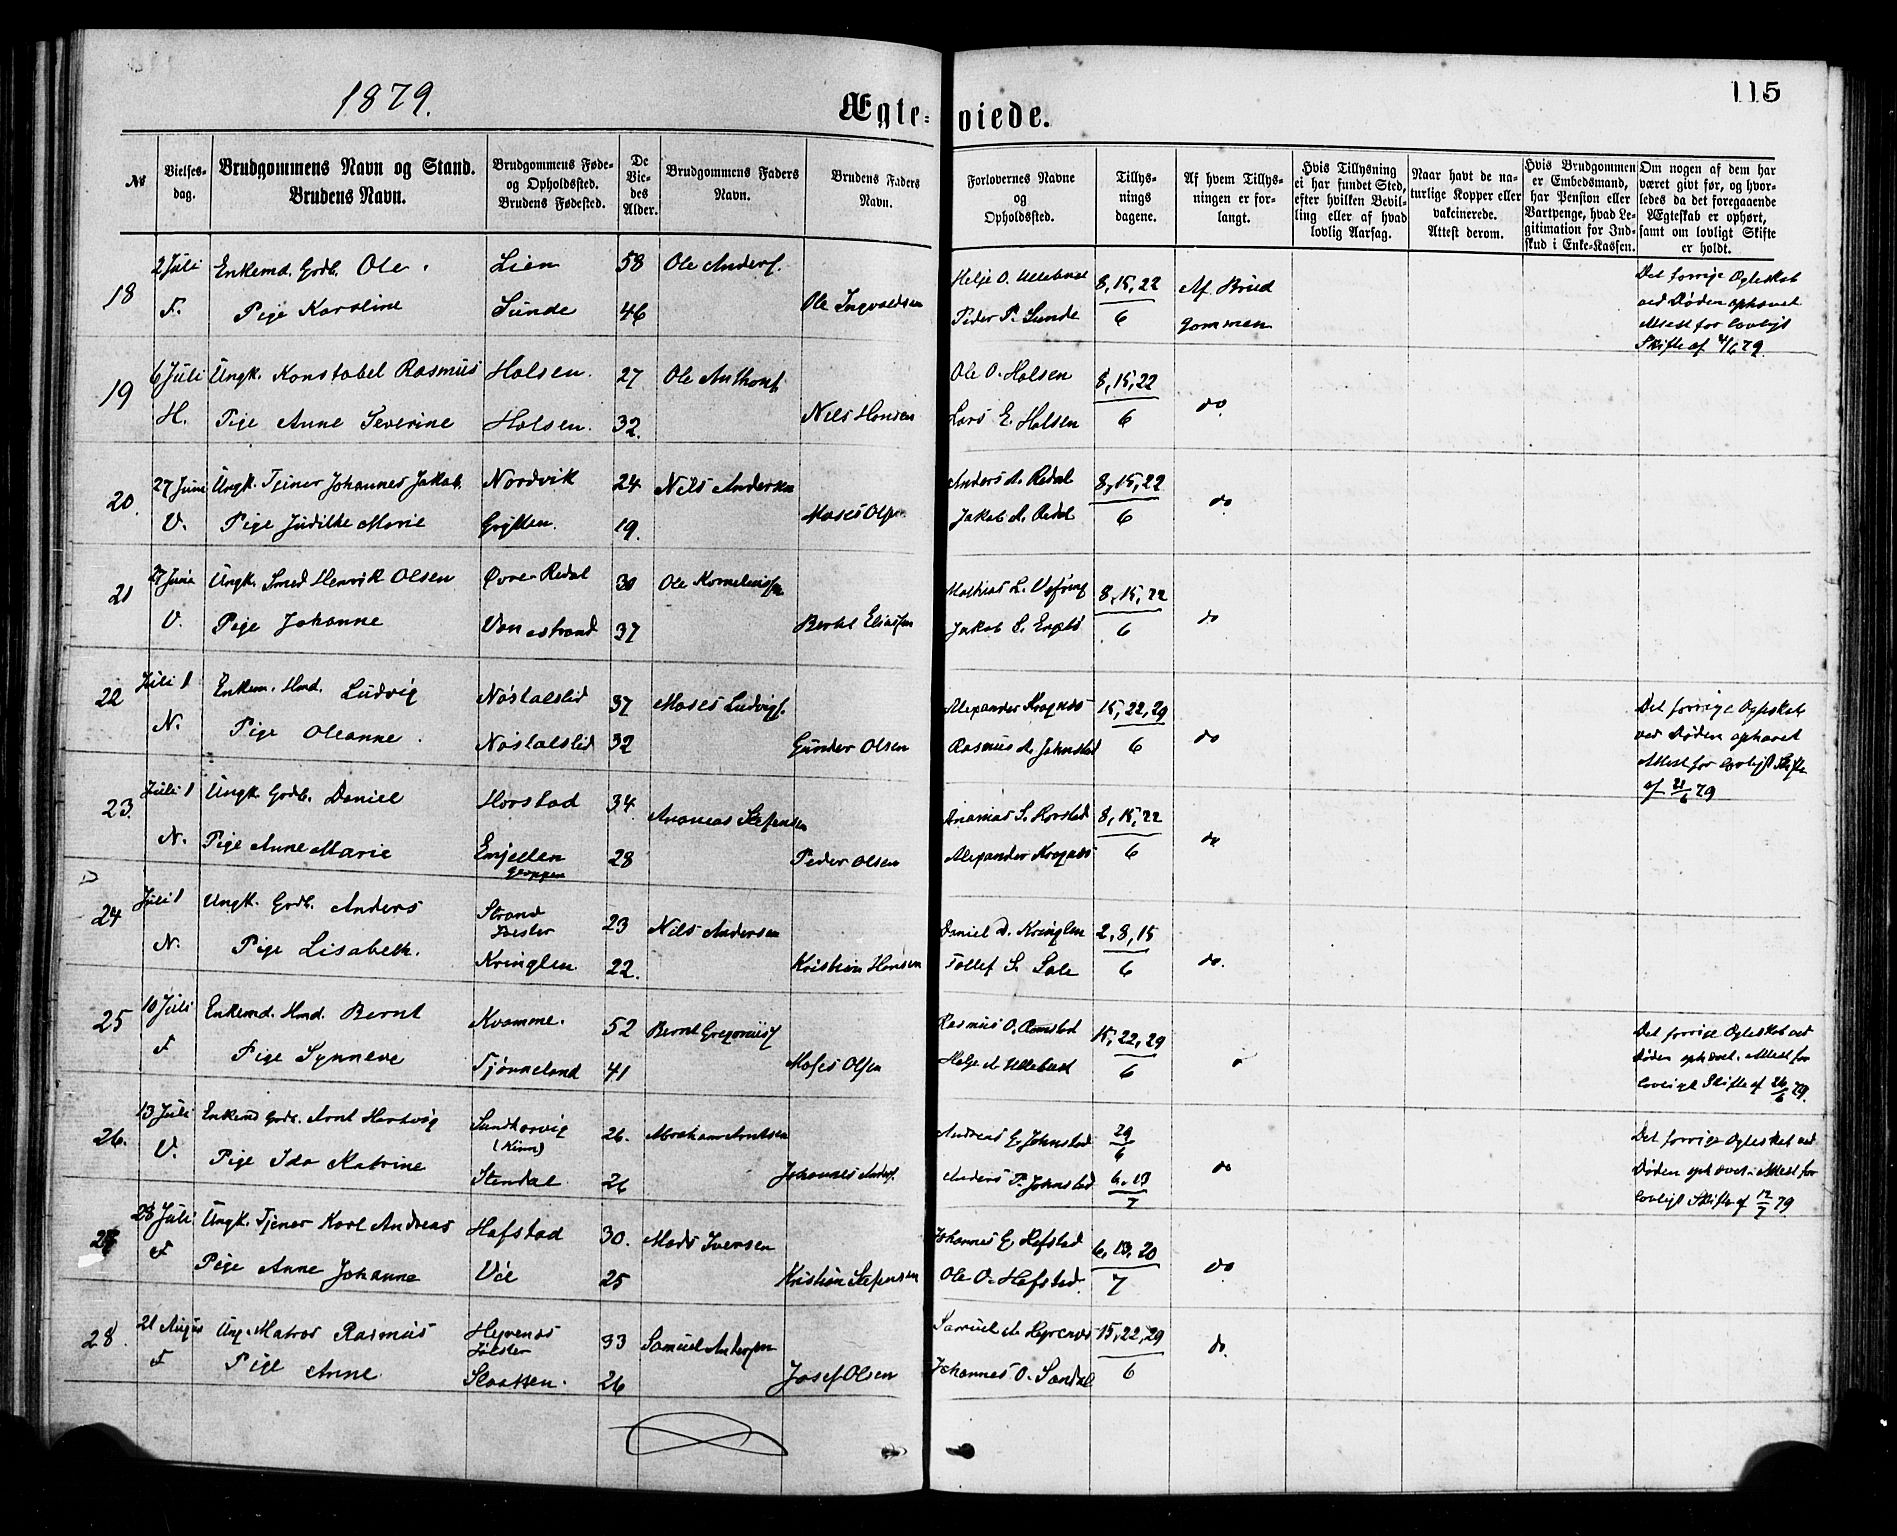 1879.
Ægte=viede.
115
No
Vielses-dag.
Brudgommens Navn og Stand. Brudens Navn.
Brudgommens Føde- og Opholdssted. Brudens Fødested.
De Viedes Alder.
Brudgommens Faders Navn.
Brudens Faders Navn.
Forlovernes Navne og Opholdssted.
Tillysningsdagene.
Af hvem Tillysningen er forlangt.
Hvis Tillysning ei har fundet Sted, efter hvilken Bevilling eller af hvad lovlig Aarsag.
Naar havt de naturlige Kopper eller vakcinerede. Attest derom.
Hvis Brudgommen er Embedsmand, har Pension eller Vartpenge, hvad Legitimation for Indskud i Enke-Kassen.
Om nogen af dem har været givt før, og hvorledes da det foregaaende Ægteskab er ophørt, samt om lovligt Skifte er holdt.
18 2 Juli Enkemd. Grdb. Ole. Lien 58 Ole Anders. Helje O. Ullebust 8, 15, 22 Af Brud Det forrige Ægteskab
F. Pige Karoline Sunde 46 Ole Ingvaldsen Peder P. Sunde 6 gommen ved Døden ophævet
Attest for lovligt
Skifte af 4/6 79.
19 6 Juli Ungk. Konstabel Rasmus Halsen. 27 Ole Anthons. Ole O. Halsen 8, 15, 22 do
H. Pige Anne Severine Halsen. 32. Nils Hansen Lars E. Halsen 6
20. 27 Juni Ungk. Tjener Johannes Jakob. Nordvik 24 Nils Andersen Anders A. Redal 8, 15, 22 do
V. Pige Judithe Marie Grytten. 19. Moses Ols. Jakob A. Redal 6
21 27 Juni Ungk. Smed Henrik Olsen Øvre Redal 30 Ole Korneliuss. Mathias L. Vefring 8, 15, 22 do
V. Pige Johanne Vonestrand 37 Berthel Eliassen Jakob S. Engebø 6
22 Juli 1 Enkem. Hmd. Ludvig Nøstalslid 37 Moses Ludvigs. Alexander Krognæs 15, 22, 29 do Det forrige Ægteskab
N. Pige Oleanne. Nøstalslid 32 Gunder Olsen Rasmus A. Johnstad 6 ved Døden ophævet
Attest for lovligt Skifte
af 21/6 79
23. Juli 1 Ungk. Grdb. Daniel Horstad 34. Ananias Stefensen Ananias S. Horstad 8, 15, 22 do
N. Pige Anne Marie 28 Peder Olsen Alexander Krognæs 6
24 Juli 1 Ungk. Grdb. Anders Strand 23 Nils Andersen Daniel D. Kringlen 2, 8, 15 do.
N. Pige Lisabeth. Kringlen 22. Kristian Hansen Tollef S. Sole 6
25 10 Juli Enkemd. Hmd. Bernt Kvamme. 52 Bernt Gregoriuss. Rasmus O. Ramstad 15, 22, 29 Det forrige Ægteskab ved
F Pige Synneve Tjønneland 41 Moses Olsen Helje A. Ullebust 6 Døden ophævet. Attest for
lovligt Skifte af 26/6 79.
26. 13 Juli Enkemd Grdb. Arnt Hartvig Sandhorvig (Kinn) 26. Abraham Arntsen Andreas E. Johnstad 29/6 do Det forrige Ægteskab ved
V. Pige Ida Katrine Stendal 26 Johannes Anders. Anders P. Johnstad 6, 13/7 Døden ophævet. Attest for
lovligt Skifte af 12/7 79
27 28 Juli Ungk. Tjener Karl Andreas Hafstad 30. Mads Iversen Johannes E. Hafstad 6, 13, 20 do
F Pige Anne Johanne Vie 25 Kristian Stefensen Ole O. Hafstad. 7
28. 21 August Ung. Matros Rasmus Heyrenæs Jølster 33 Samuel Andersen Samuel A. Heyrenæs 15, 22, 29 do.
F Pige Anne Slaatten. 26 Josef Olsen Johannes O. Sandal 6